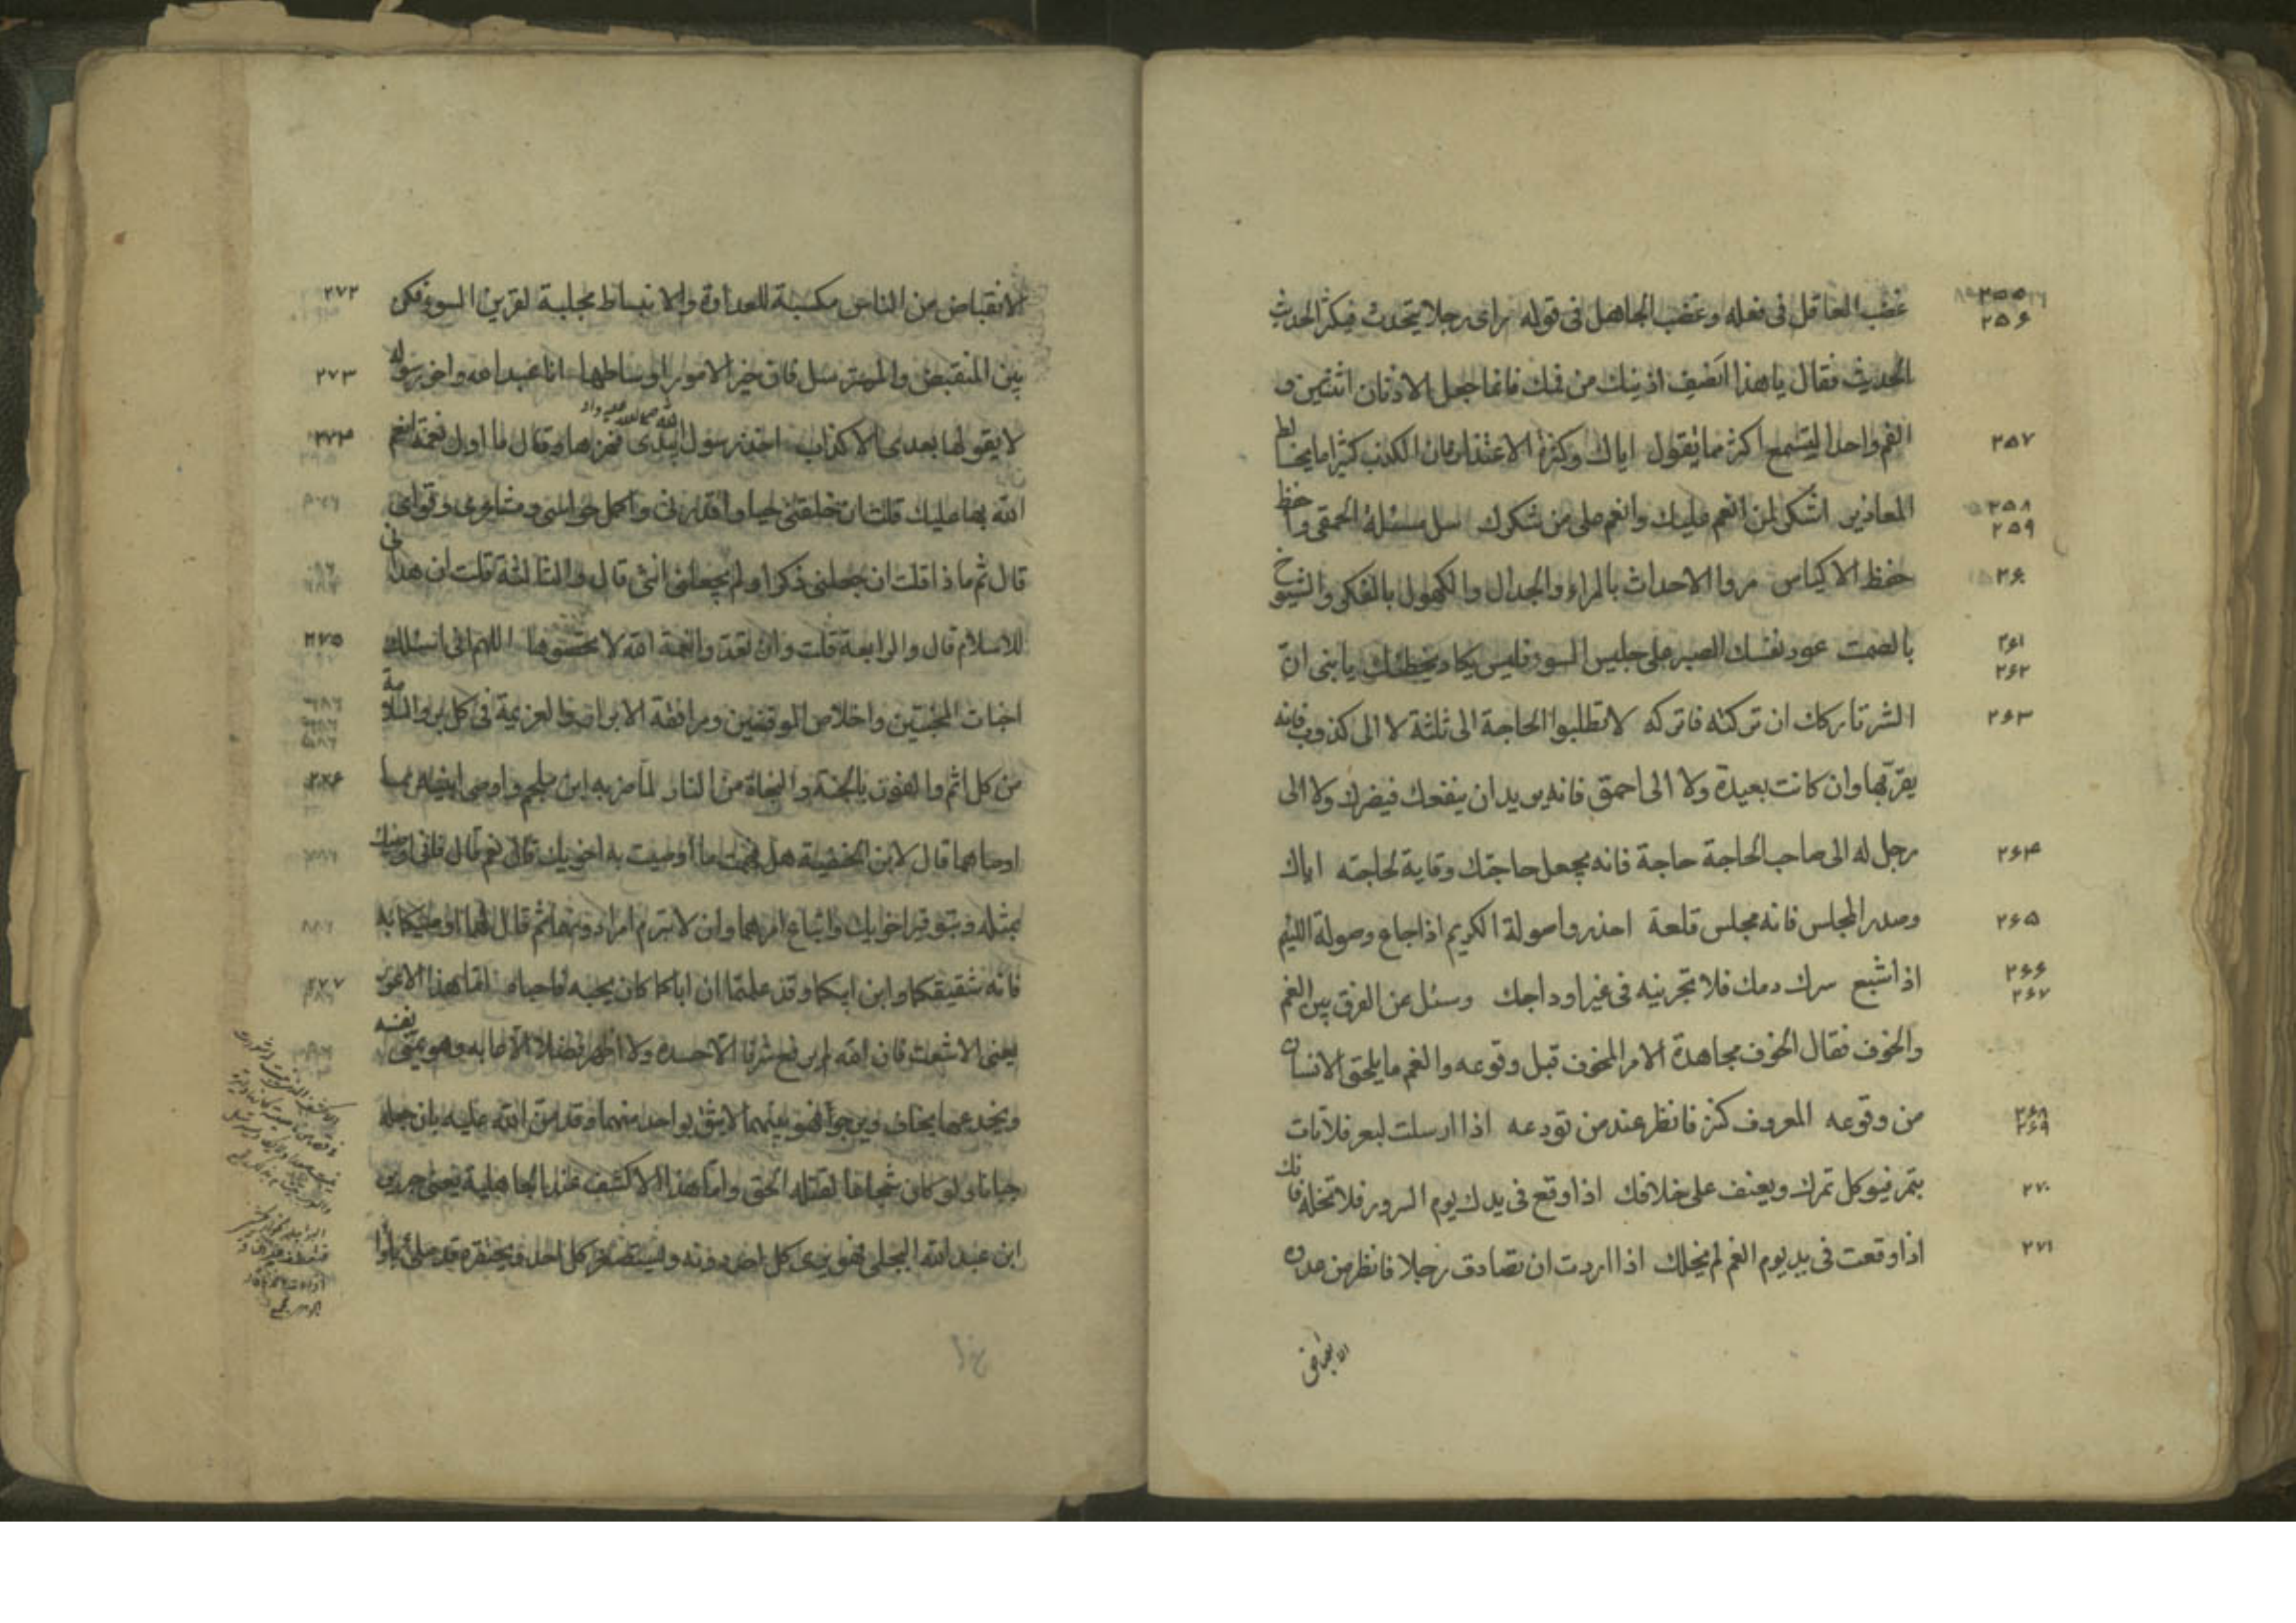 ٢٥٥ غضب العاقل فى فعله وغضب الجاهل فى قوله راى رجلا يتحدث فيكثر الحديث
٢٥۶
الحديث فقال يا هذا انصف اذنيك من فمك فانما جعل الاذنان اثنتين و
٢٥٧ الفم واحدا ليستمع اكثر مما تقول اياك وكثرة الاعتذار فان الكذب كثيرا ما يخالط
٢٥٨ المعاذير اشكر لمن انعم عليك وانعم على من شكرك سل مسئلة الحمقى واحفظ
٢٥٩
٢۶٠ حفظ الاكياس مروا الاحداث بالمراء والجدال والكهول بالفكر والشيوخ
٢۶١ بالصمت عود نفسك الصبر على جليس السوء فليس يكاد يخطئك يا بنى ان
٢۶٢
٢۶٣ الشر تاركك ان تركته فاتركه لا تطلبوا الحاجة الى ثلثة لا الى كذوب فانه
يقربها وان كانت بعيدة ولا الى احمق فانه يريد ان ينفعك فيضرك ولا الى
٢۶۴ رجل له الى صاحب الحاجة حاجة فانه يجعل حاجتك وقاية لحاجته اياك
٢۶٥ وصدر المجلس فانه مجلس قلعة احذروا صولة الكريم اذا جاع وصولة اللئيم
٢۶۶ اذا شبع سرك دمك فلا تجرينه فى غير اوداجك وسئل عن الفرق بين الغم
٢۶٧
والخوف فقال الخوف مجاهدة الامر المخوف قبل وقوعه والغم ما يلحق الانسان
٢۶٨ من وقوعه المعروف كنز فانظر عند من تودعه اذا ارسلت لبعر فلا تات
٢۶٩
٢٧٠ بتمر فيوكل تمرك ويعنف على خلافك اذا وقع فى يدك يوم السرور فلا تخله فانك
٢٧١ اذا وقعت فى يد يوم الغم لم يخلك اذا اردت ان تصادق رجلا فانظر من عدوه
الانقباض
٢٧٢ الانقباض من الناس مكسبة للعداوة والانبساط مجلبة لقرين السوء فكن
٢٧٣ بين المنقبض والمسترسل فان خير الامور اوساطها انا عبد الله واخو رسوله
٢٧۴ لا يقولها بعدى الا كذاب اخذ رسول الله صلى الله عليه واله بيدى فهزها وقال ما اول نعمة انعم
الله بها عليك قلت ان خلقنى حيا واقدرنى واكمل حواسى ومشاعرى وقواى
قال ثم ماذا قلت ان جعلنى ذكرا ولم يجعلنى انثى قال والثالثة قلت ان هدانى
٢٧٥ للاسلام قال والرابعة قلت وان تعدوا نعمة الله لا تحصوها اللهم انى اسئلك
اخبات المخبتين واخلاص الموقنين ومرافقة الابرار والعزيمة فى كل بر والسلامة
٢٧۶ من كل اثم والفوز بالجنة والنجاة من النار لما ضربه ابن ملجم واوصى ابنيه بما
اوصاهما قال لابن الحنفية هل فهمت ما اوصيت به اخويك قال نعم قال فانى اوصيك
بمثله وبتوقير اخويك واتباع امرهما وان لا تبرم امرا دونهما ثم قال لهما اوصيكما به
٢٧٧ فانه شقيقكما وابن ابيكما وقد علمتما ان اباكما كان يحبه فاحباه اما هذا الاعور
يعنى الاشعث فان الله لم يرفع شرفا الا حسده ولا اظهر فضلا الا عابه وهو يمنى نفسه
ويخدعها يخاف ويرجوا فهو بينهما لا يثق بواحد منهما وقد من الله عليه بان جعله
جبانا ولو كان شجاعا لقتله الحق واما هذا الاكشف عند الجاهلية يعنى جرير
ابن عبد الله البجلى فهو يرى كل احد دونه ويستصغر كل احد ويحتقره قد ملئ نارا